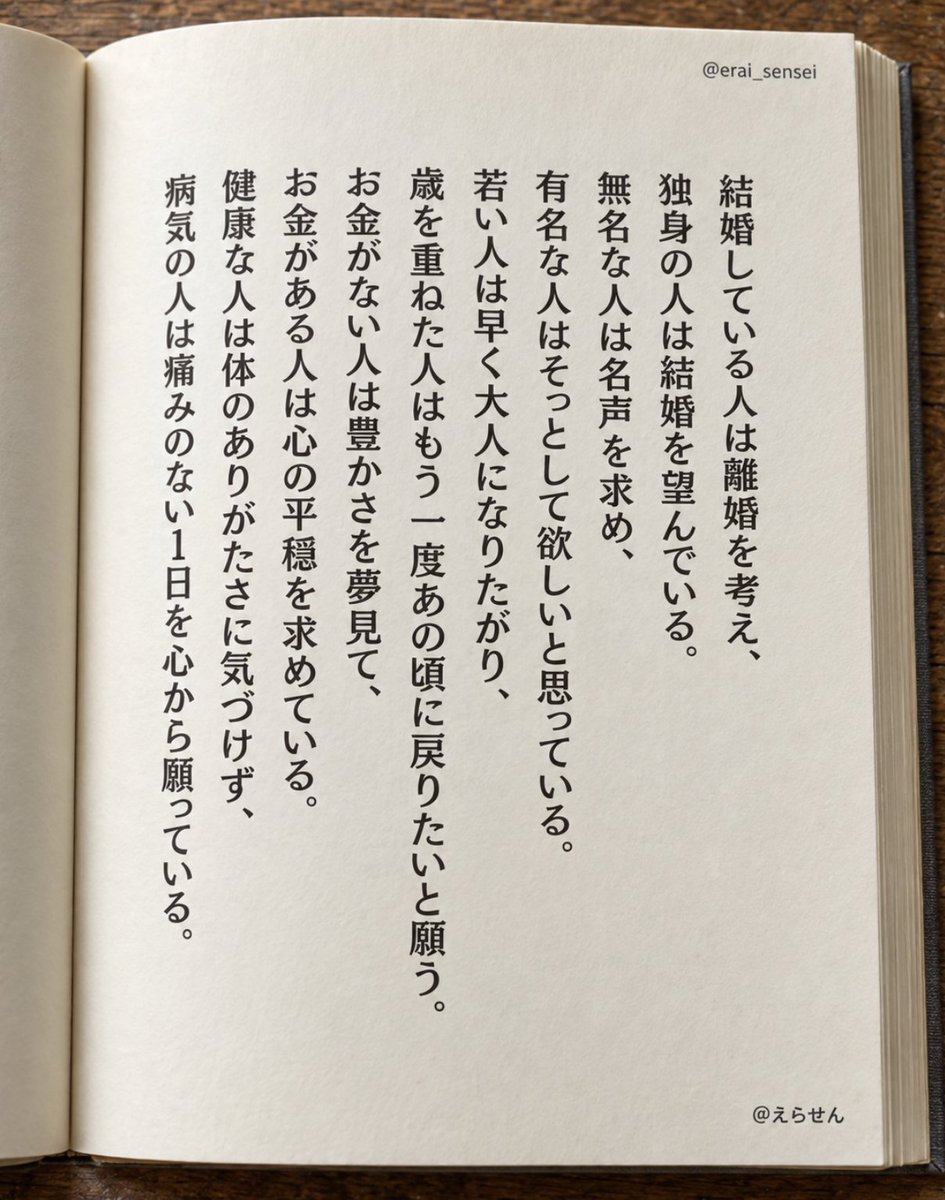 @erai_sensei
結婚している人は離婚を考え、
独身の人は結婚を望んでいる。
無名な人は名声を求め、
有名な人はそっとして欲しいと思っている。
若い人は早く大人になりたがり、
歳を重ねた人はもう一度あの頃に戻りたいと願う。
お金がない人は豊かさを夢見て、
お金がある人は心の平穏を求めている。
健康な人は体のありがたさに気づけず、
病気の人は痛みのない1日を心から願っている。
@えらせん